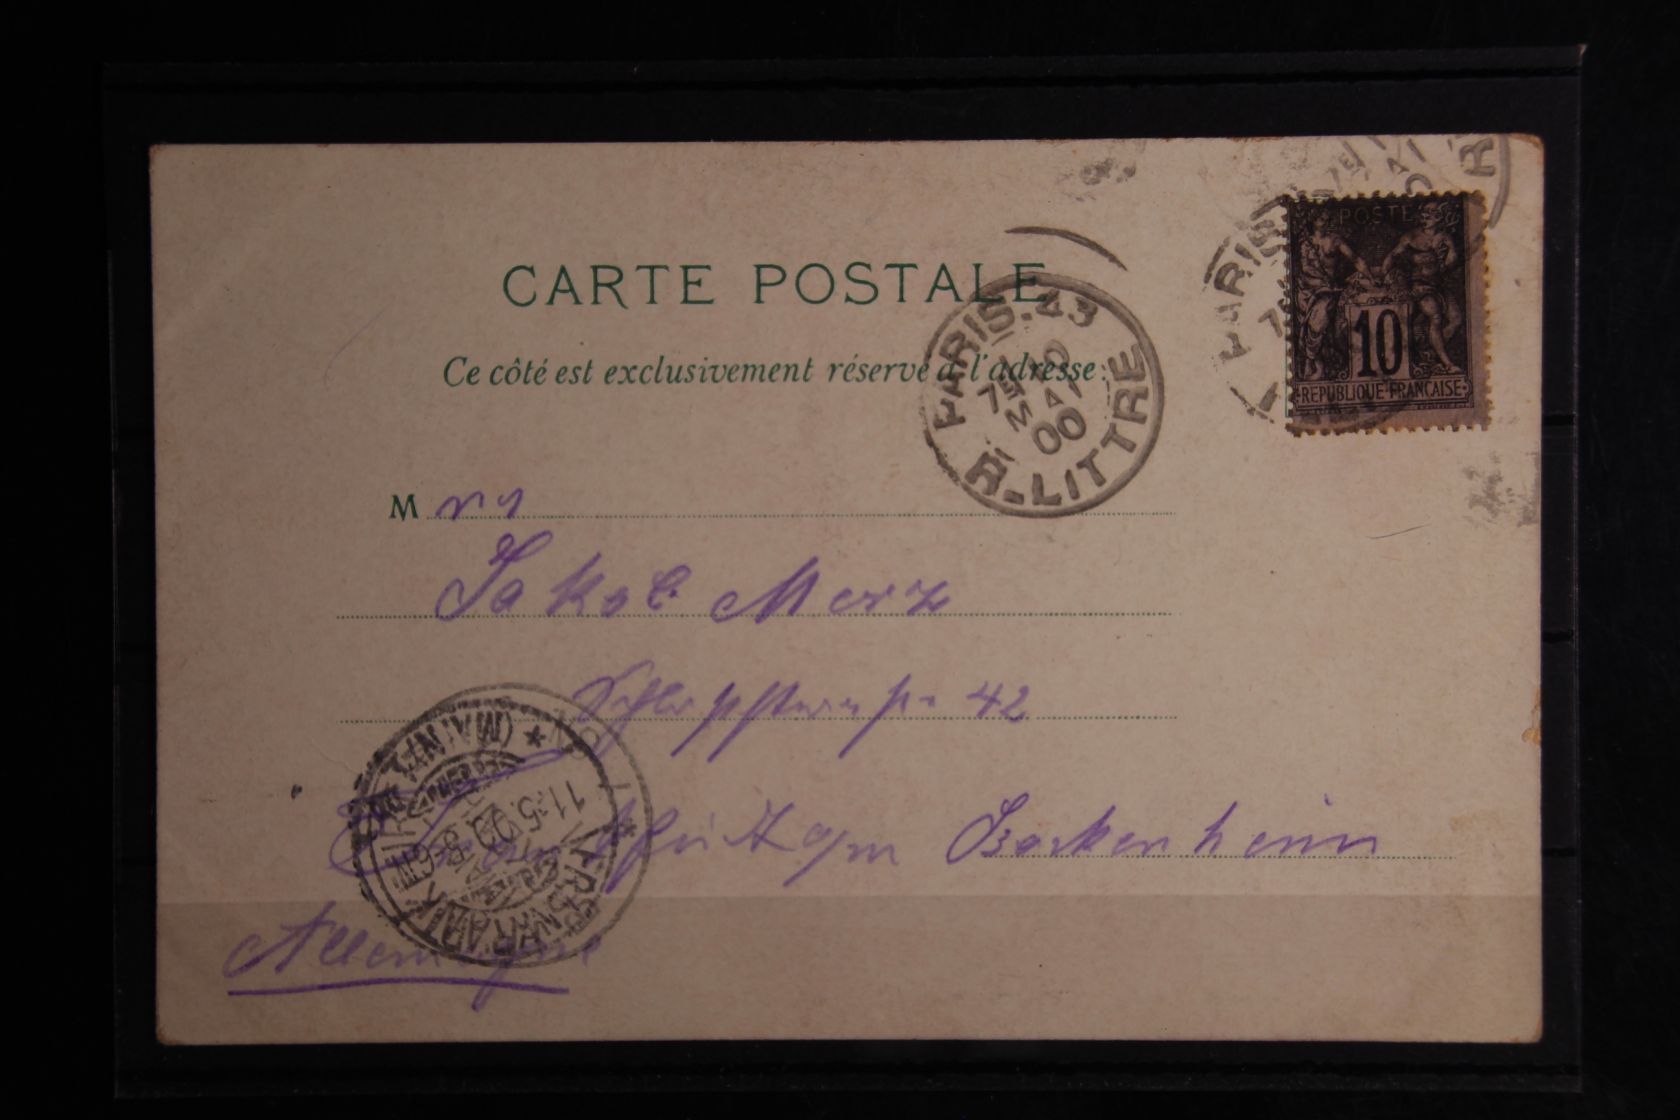 CARTE POSTALE
Ce côté est exclusivement réservé à l'adresse:
PARIS.43
MAI
00
R.LITTRE
PARIS
R
POSTE
10
REPUBLIQUE FRANÇAISE
M rs
Jakob Merz
42
Bockenheim
Allemagne
(MAIN)
11.5.00